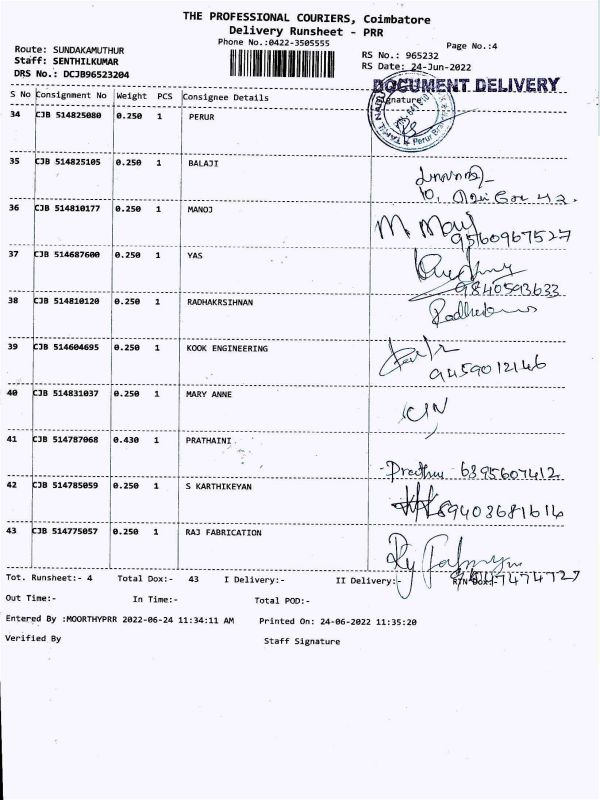 THE PROFESSIONAL COURIERS, Coimbatore
Delivery Runsheet - PRR
Phone No.:0422-3505555
Page No.:4
Route: SUNDAKAMUTHUR
Staff: SENTHILKUMAR
DRS No.: DCJB96523204
RS No.: 965232
RS Date: 24-Jun-2022
DOCUMENT DELIVERY
S No Consignment No Weight PCS Consignee Details Signature
34 CJB 514825080 0.250 1 PERUR
35 CJB 514825105 0.250 1 BALAJI
36 CJB 514810177 0.250 1 MANOJ
9560967527
37 CJB 514687600 0.250 1 YAS
9840593633
38 CJB 514810120 0.250 1 RADHAKRSIHNAN
39 CJB 514604695 0.250 1 KOOK ENGINEERING
9459012146
40 CJB 514831037 0.250 1 MARY ANNE
41 CJB 514787068 0.430 1 PRATHAINI
6395607412
42 CJB 514785059 0.250 1 S KARTHIKEYAN
89403681614
43 CJB 514775057 0.250 1 RAJ FABRICATION
Tot. Runsheet:- 4 Total Dox:- 43 I Delivery:- II Delivery:- RTN Dox:-
Out Time:- In Time:- Total POD:-
Entered By :MOORTHYPRR 2022-06-24 11:34:11 AM Printed On: 24-06-2022 11:35:20
Verified By Staff Signature